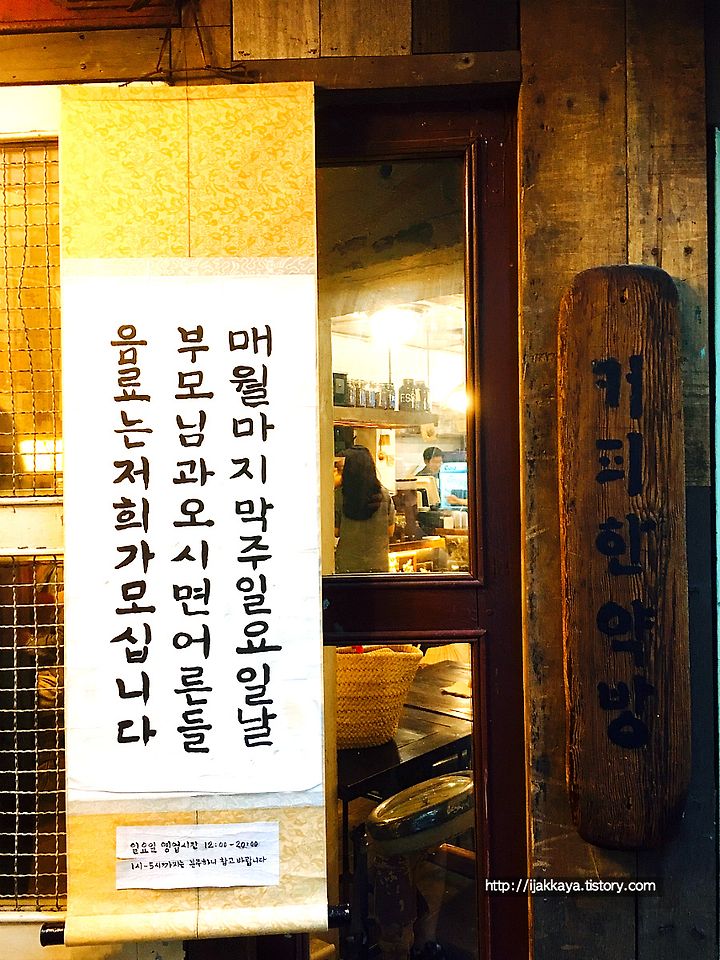 매월마지막주일요일날
부모님과오시면어른들
음료는저희가모십니다
일요일 영업시간 12:00-20:00
1시-5시까지는 분주하니 참고바랍니다
커피한약방
http://ijakkaya.tistory.com